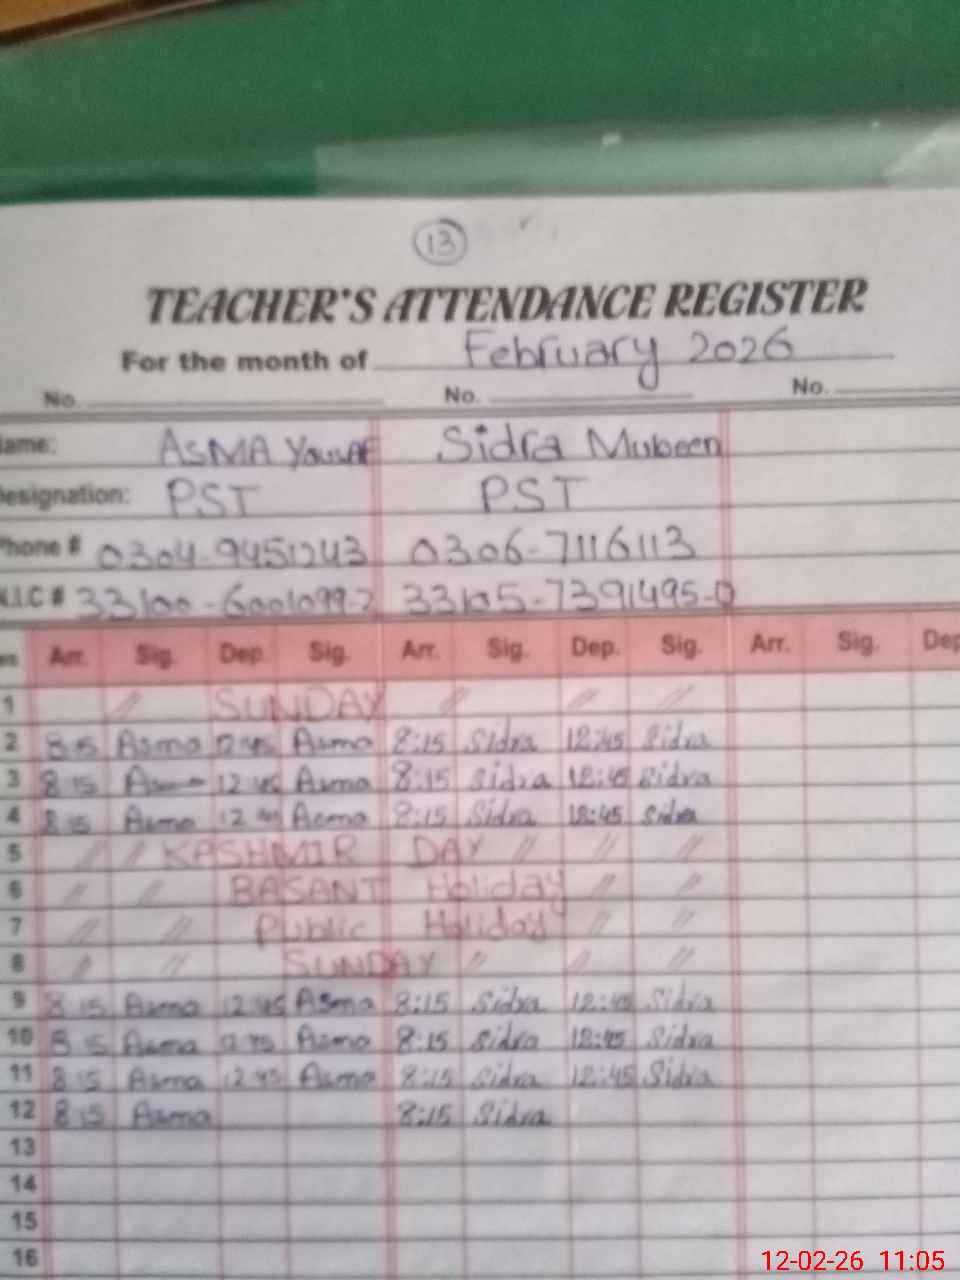 13
TEACHER'S ATTENDANCE REGISTER
For the month of February 2026
No. No. No.
Name: ASMA Yousaf Sidra Mubeen
Designation: PST PST
Phone # 0304-9451243 0306-7116113
N.I.C # 33100-6001099-2 33105-7391495-0
Arr. Sig. Dep. Sig. Arr. Sig. Dep. Sig. Arr. Sig. Dep
1 // SUNDAY // // //
2 8:15 Asma 12:45 Asma 8:15 Sidra 12:45 Sidra
3 8:15 Asma 12:45 Asma 8:15 Sidra 12:45 Sidra
4 8:15 Asma 12:45 Asma 8:15 Sidra 12:45 Sidra
5 // // KASHMIR DAY // // //
6 // // BASANT Holiday // //
7 // // Public Holiday // //
8 // // SUNDAY // // //
9 8:15 Asma 12:45 Asma 8:15 Sidra 12:45 Sidra
10 8:15 Asma 12:45 Asma 8:15 Sidra 12:45 Sidra
11 8:15 Asma 12:45 Asma 8:15 Sidra 12:45 Sidra
12 8:15 Asma 8:15 Sidra
13
14
15
16
12-02-26 11:05